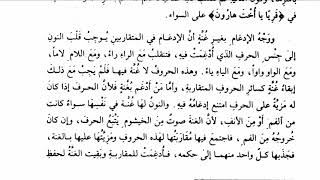 في ﴿فَرِيّا يا أُخْتَ هارُونَ﴾ على السواء.
ووَجْهُ الإدغام بغيرِ غُنَّةٍ أنَّ الإدغامَ في المتقاربَينِ يُوجِبُ قَلْبَ النونِ
إلى جِنْسِ الحرفِ الذي أُدْغِمَتْ فيه، فتنقلبُ مَعَ الراءِ راءً، ومَعَ اللامِ لاماً،
ومَعَ الواوِ واواً، ومَعَ الياءِ ياءً، وهذه الحروفُ لا غُنَّةَ فيها فلم يَجُزْ مَعَ ذلك
إبقاءُ غُنَّةٍ كسائرِ الحروفِ المتقاربةِ، وأما مَنْ أَدْغَمَ بِغُنَّةٍ فلأنَّ الحرفَ إذا كان
له مَزِيَّةٌ على الحرفِ امتنع إدغامُهُ فيه. والنونُ لها غُنَّةٌ في نَفْسِها سواءً كانت
من الفمِ أو الأنفِ، لأنَّ الغُنَّةَ صوتٌ مِنَ الخيشومِ يَتْبَعُ الحرفَ، وإن كان
خُروجُهُ مِنَ الفمِ، فاجتمعَ فيها مُقارَبَتُها لهذه الحروفِ ومَزِيَّتُها عليها بالغنةِ،
فجَذَبها كلُّ واحدٍ منهما إلى حكمِه، فأُدغمتْ للمقاربةِ وبقيت الغنَّةُ لحفظِ